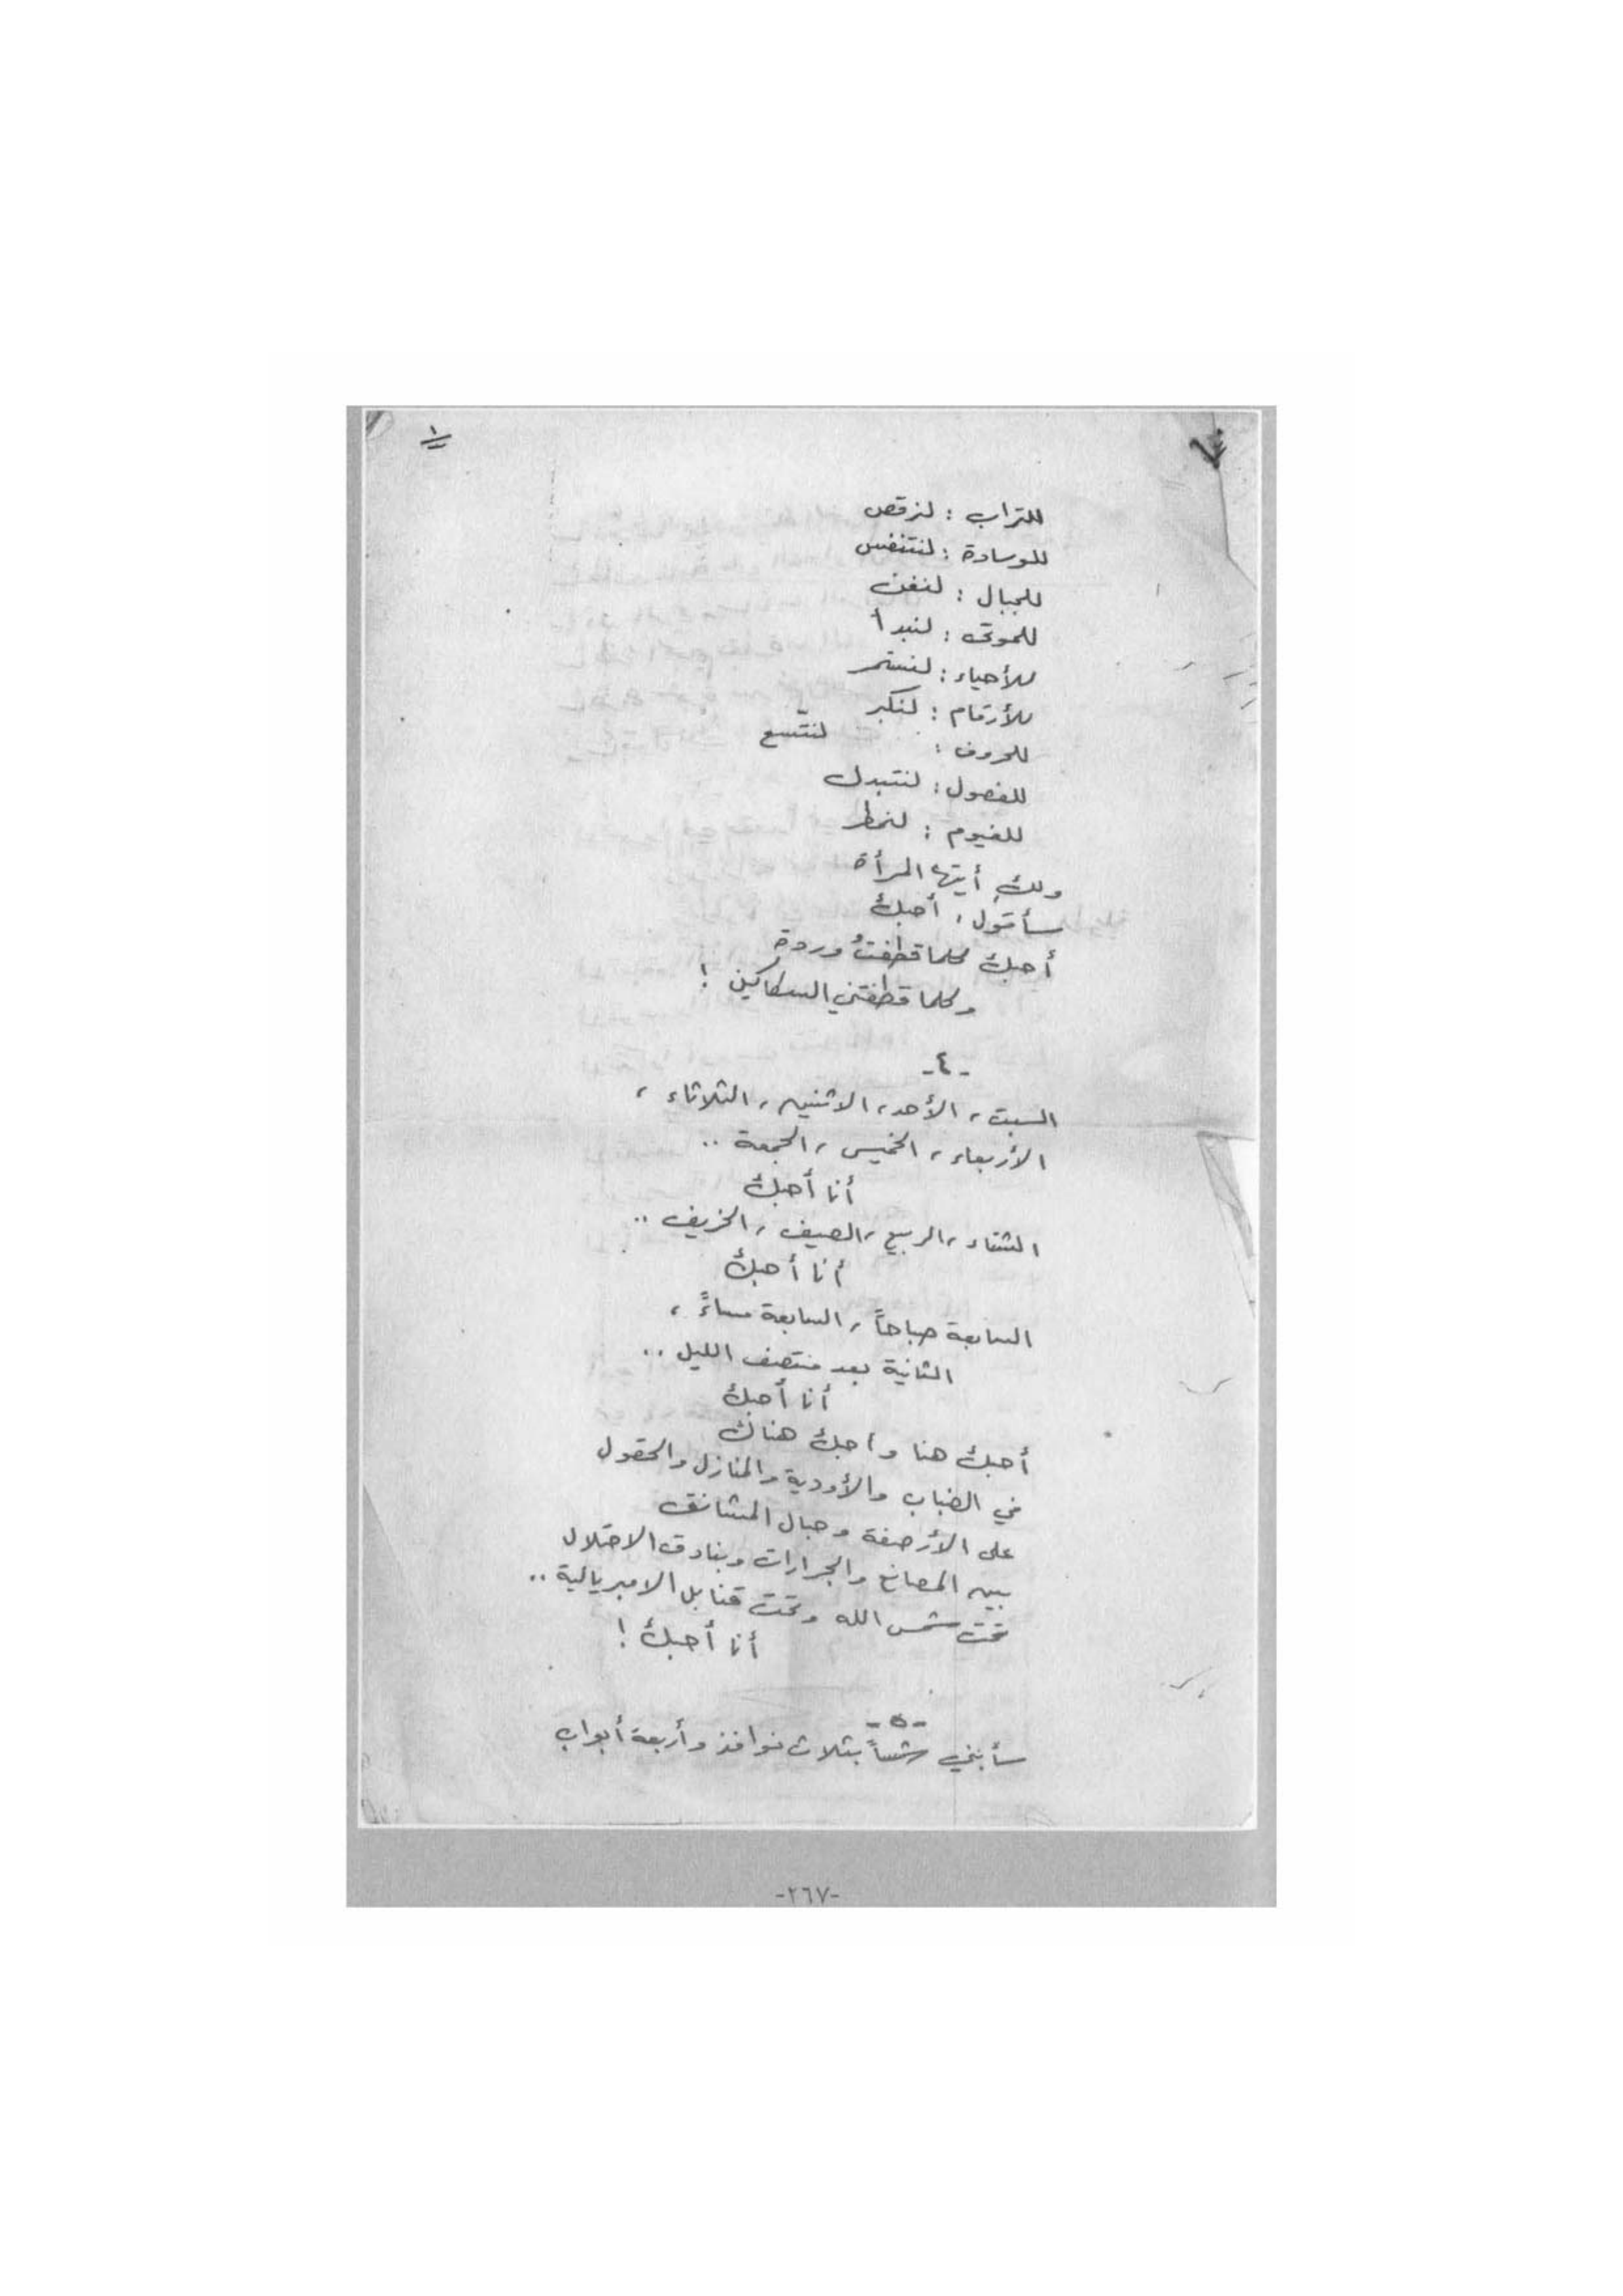 ١
للتراب : لنرقص
للوسادة : لنتنفس
للجبال : لنغن
للموتى : لنبدأ
للأحياء : لنستمر
للأرقام : لنكبر
للحروف : لنتّسع
للفصول : لنتبدل
للغيوم : لنمطر
ولكِ أيتها المرأة
سأقول : أحبكِ
أحبكِ كلما قطفتُ وردة
وكلما قطفتني السكاكين !
-٤-
السبت ، الأحد ، الاثنين ، الثلاثاء ،
الأربعاء ، الخميس ، الجمعة ..
أنا أحبكِ
الشتاء ، الربيع ، الصيف ، الخريف ..
أنا أحبكِ
السابعة صباحاً ، السابعة مساءً ،
الثانية بعد منتصف الليل ..
أنا أحبكِ
أحبك هنا واحبك هناك
في الضباب والأودية والمنازل والحقول
على الأرصفة وحبال المشانق
بين المصانع والجرارات وبنادق الاحتلال
تحت شمس الله وتحت قنابل الامبريالية ..
أنا أحبك !
-٥-
سأبني شمساً بثلاث نوافذ وأربعة أبواب
-٢٦٧-